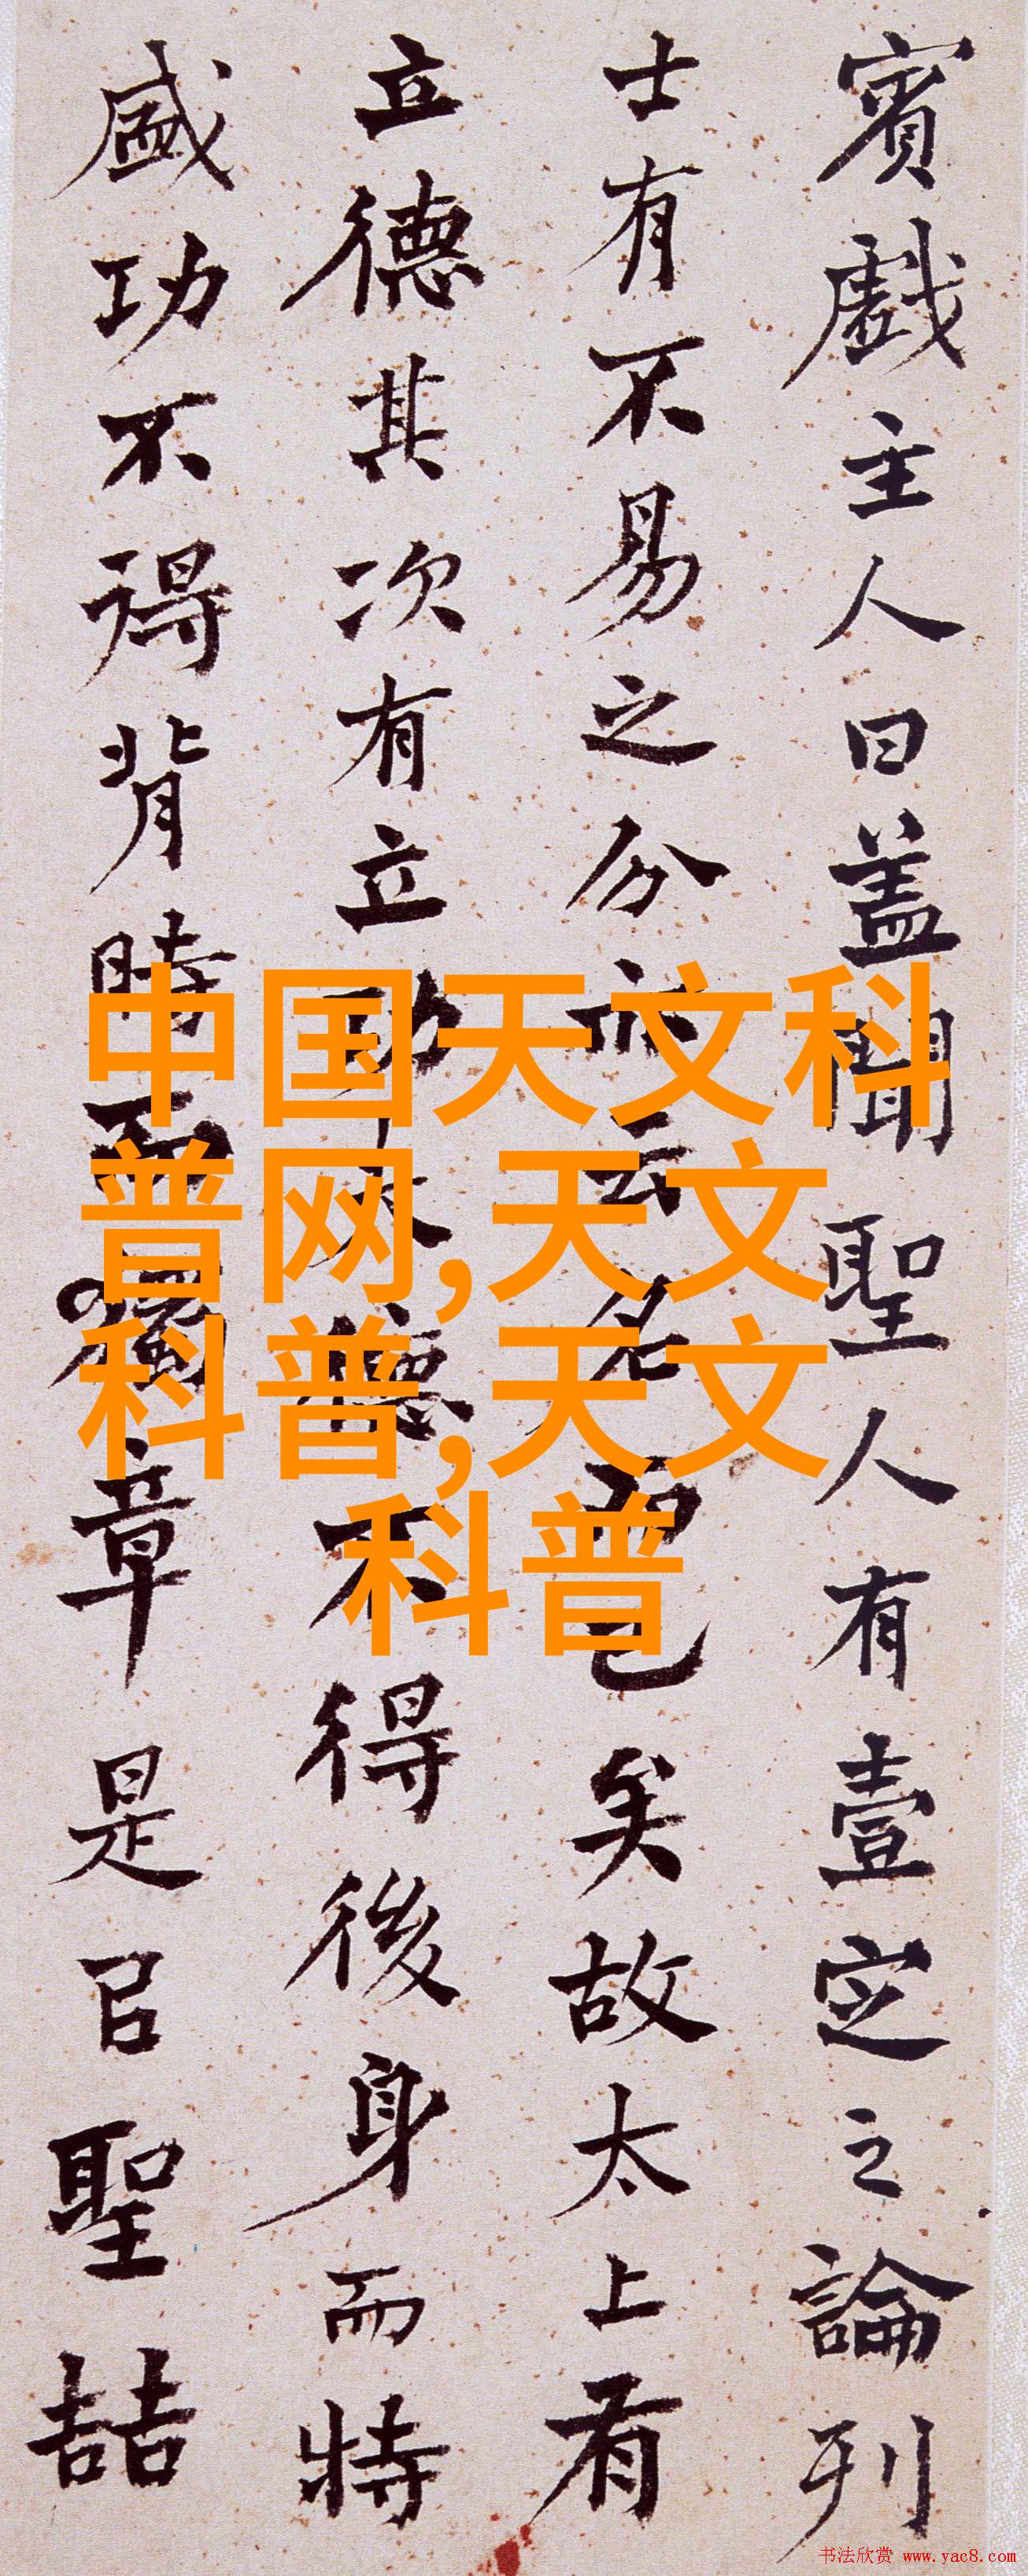 賓戲主人曰盖聞聖人有壹定之論列
士有不易之分亦云名而已矣故太上有
立德其次有立功夫德不得後身而特
盛功不得背時而獨章是以聖喆
中国天文科
普网,天文
科普,天文
科普
书法欣赏 www.yac8.com